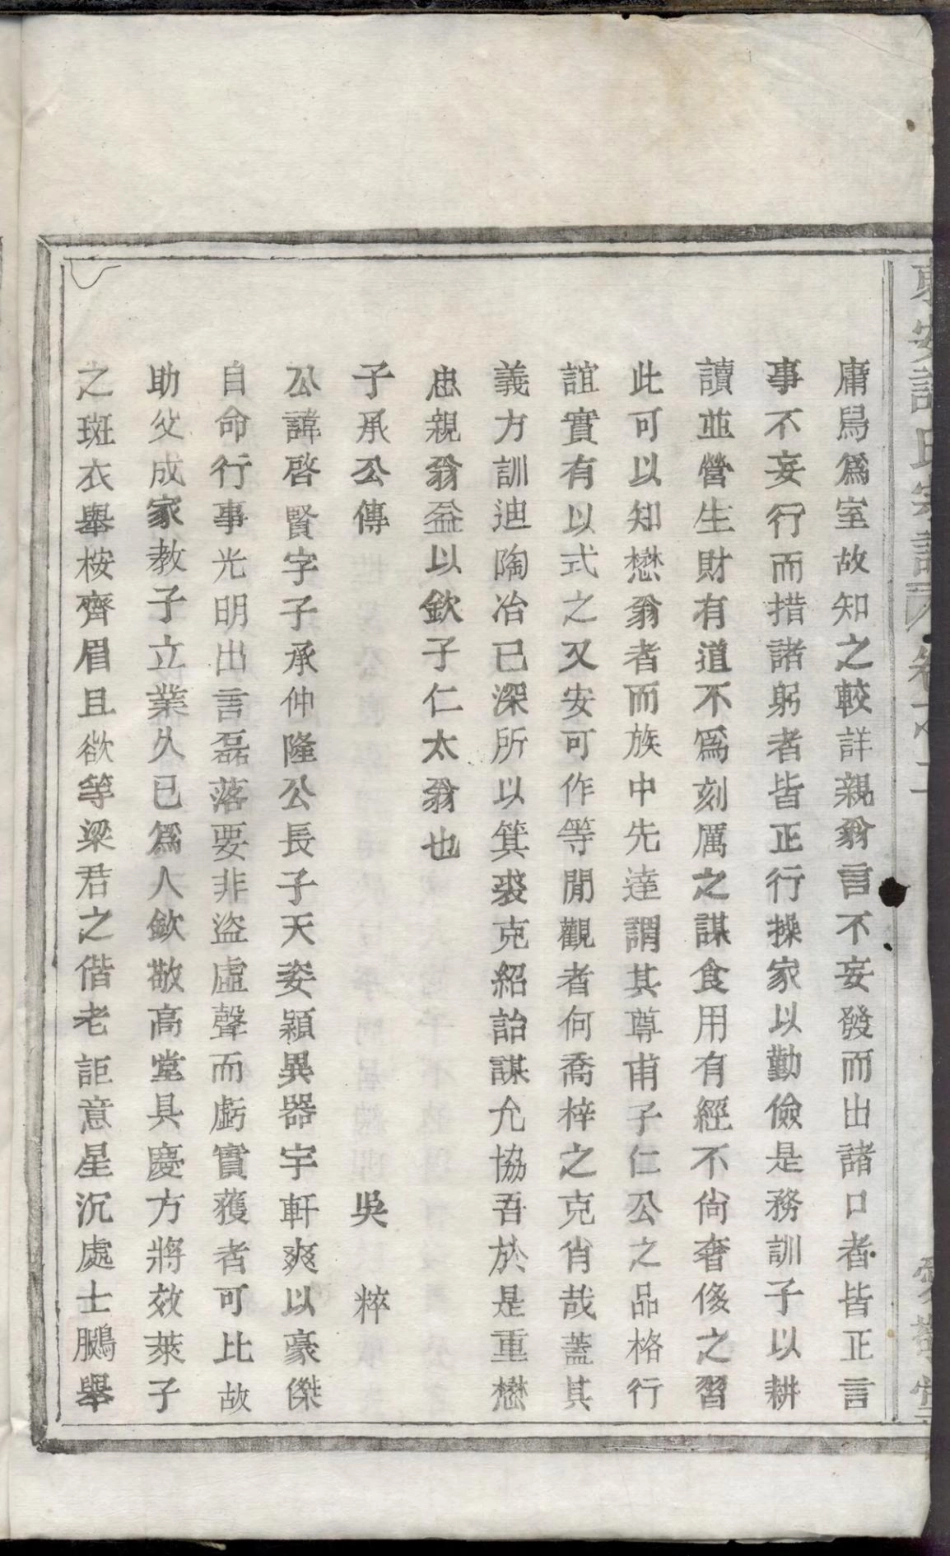 庸鳥爲室故知之較詳親翁言不妄發而出諸口者皆正言
事不妄行而措諸躬者皆正行操家以勤儉是務訓子以耕
讀並營生財有道不爲刻厲之謀食用有經不尙奢侈之習
此可以知懋翁者而族中先達謂其尊甫子仁公之品格行
誼實有以式之又安可作等閒觀者何喬梓之克肖哉蓋其
義方訓迪陶冶已深所以箕裘克紹詒謀允協吾於是重懋
忠親翁益以欽子仁太翁也
子承公傳　吳　粹
公諱啓賢字子承仲隆公長子天姿穎異器宇軒爽以豪傑
自命行事光明出言磊落要非盜虛聲而虧實獲者可比故
助父成家教子立業久已爲人欽敬高堂具慶方將效萊子
之斑衣舉桉齊眉且欲等梁君之偕老詎意星沉處士鵩舉